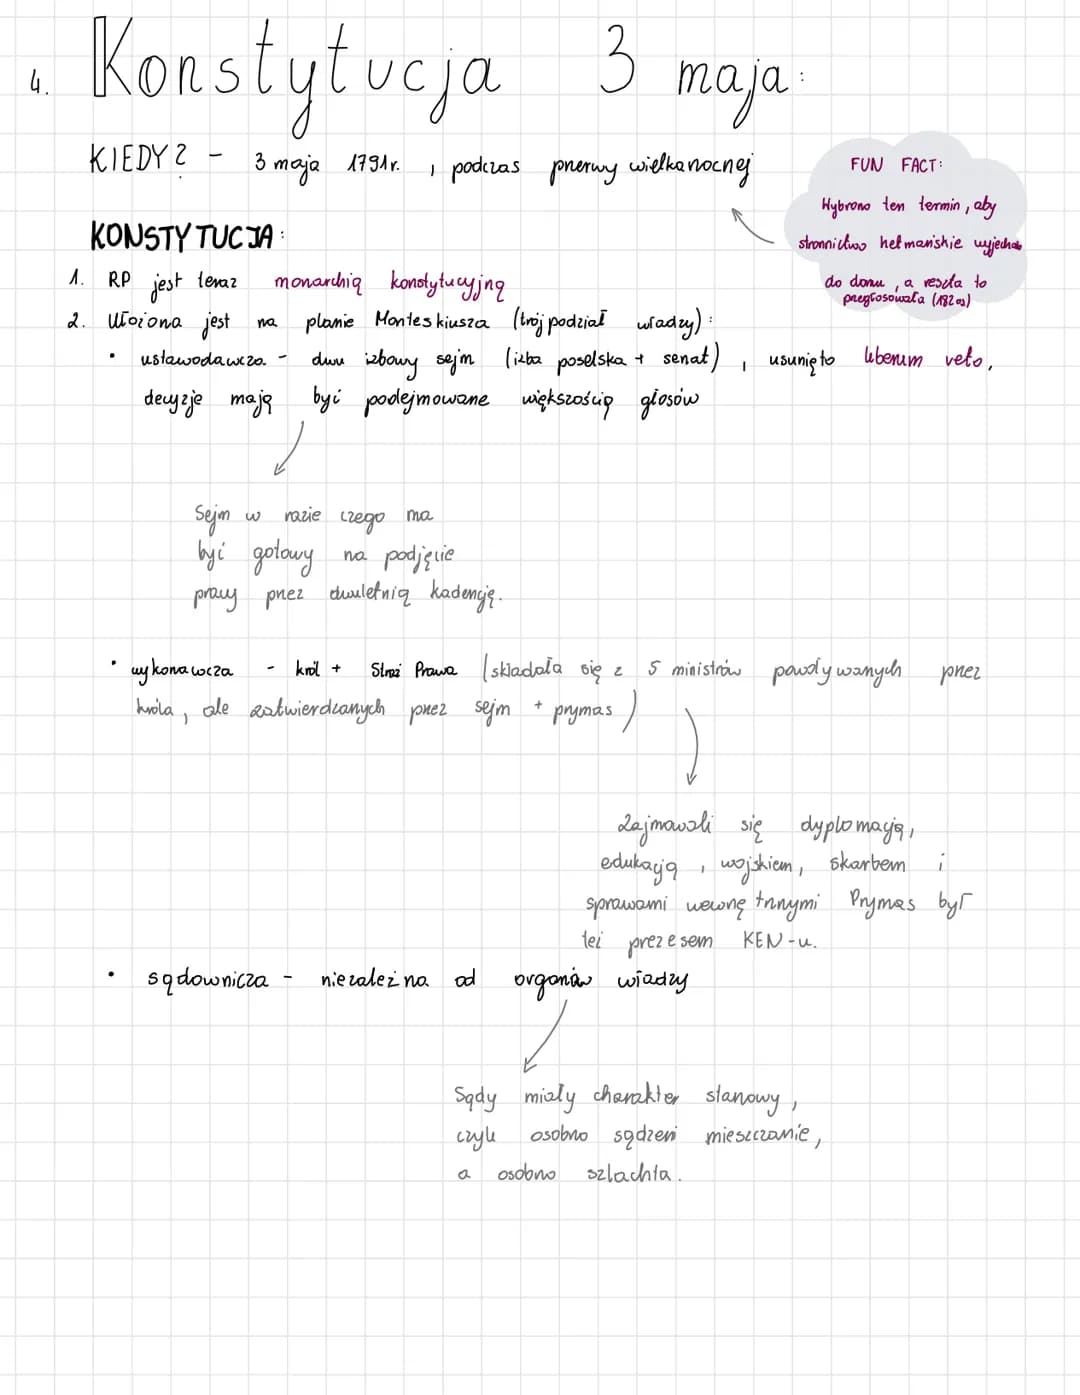 4. Konstytucja 3 maja:
KIEDY? - 3 maja 1791r. , podczas przerwy wielkanocnej
FUN FACT:
Wybrano ten termin, aby
stronnictwo hetmańskie wyjechało
do domu, a reszta to
przegłosowała (182 os)
KONSTYTUCJA:
1. RP jest teraz monarchią konstytucyjną
2. Ułożona jest na planie Monteskiusza (trójpodział władzy):
• ustawodawcza - dwu izbowy sejm (izba poselska + senat), usunięto liberum veto,
decyzje mają być podejmowane większością głosów
Sejm w razie czego ma
być gotowy na podjęcie
pracy przez dwuletnią kadencję.
• wykonawcza - król + Straż Prawa (składała się z 5 ministrów powoływanych przez
króla, ale zatwierdzanych przez sejm + prymas)
Zajmowali się dyplomacją,
edukacją, wojskiem, skarbem i
sprawami wewnętrznymi Prymas był
też prezesem KEN-u.
• sądownicza - niezależna od organów władzy
Sądy miały charakter stanowy,
czyli osobno sądzeni mieszczanie,
a osobno szlachta.